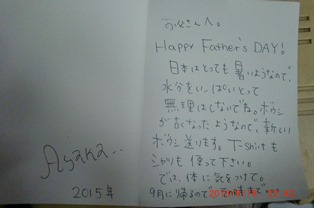 お父さんへ。
Happy Father's DAY!
日本はとっても暑いようなので、
水分をいっぱいとって
無理はしないでね。ボウシ
が古くなったようなので、新しい
ボウシ送ります。T-Shirtも
使って下さい。
では、体に気をつけて。
9月に帰るので
Ayaka..
2015年